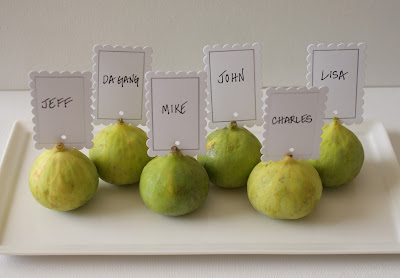 JEFF
DA GANG
MIKE
JOHN
CHARLES
LISA